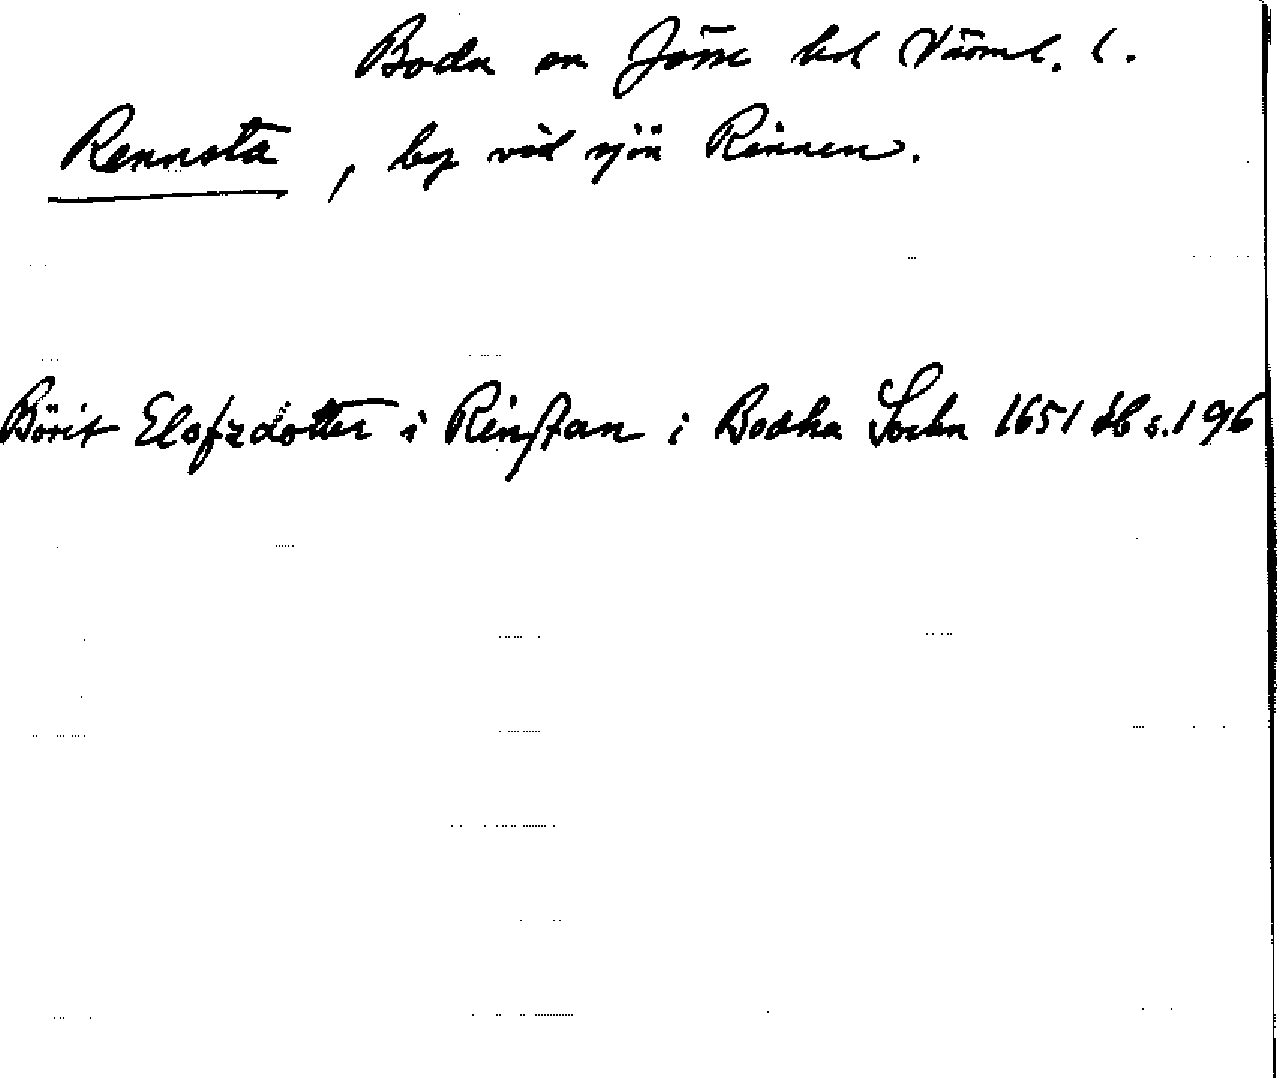 Boda sn Jösse hd Värml. l.
Rennsta, by vid sjön Rinnen.
Börit Elofzdotter i Rinstan i Bodha Sockn 1651 db s. 196